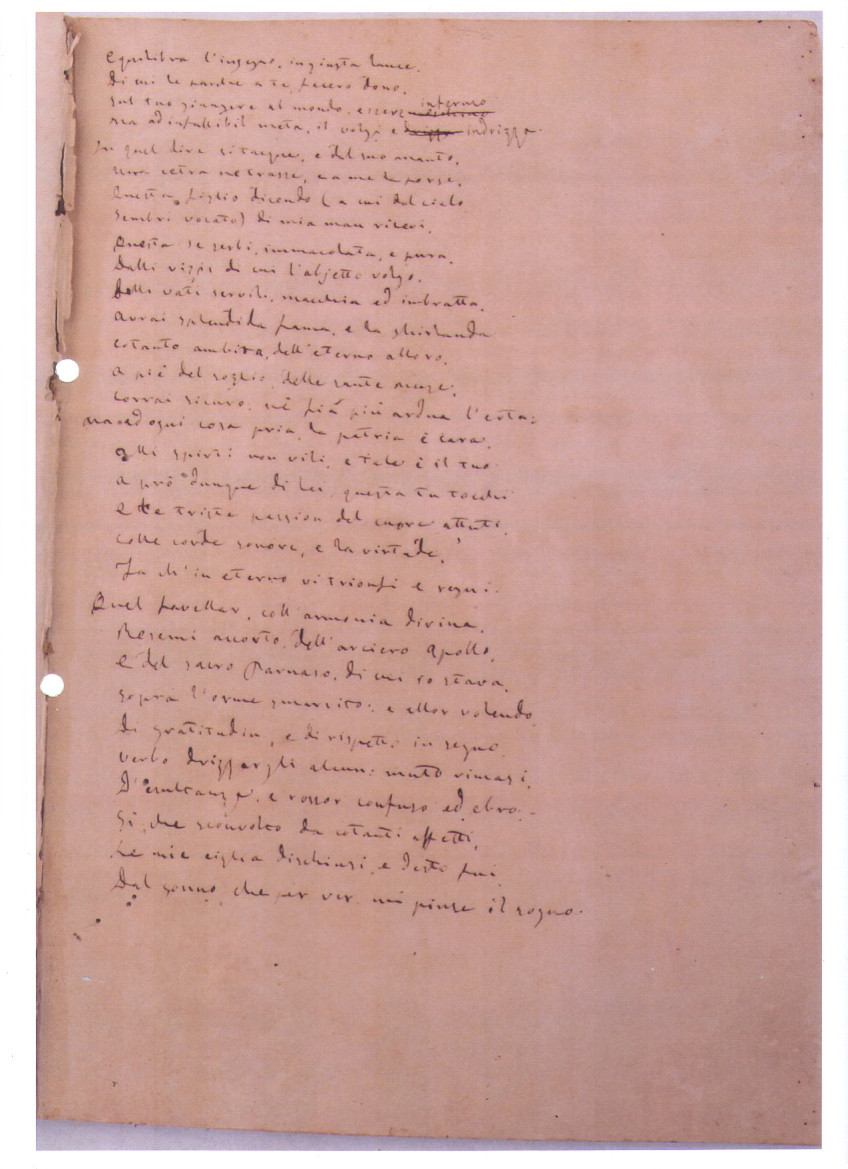 Equilibra l'ingegno, in giusta lance.
Di cui le parche a te, fecero dono,
sul tuo giungere al mondo, e essere infermo
ma ad infallibil meta, il volgi e drizza indrizza.
In quel dire si tacque, e dal suo manto,
una cetra ne trasse, e a me la porse,
Questa, figlio dicendo (a cui dal cielo
sembri vocato) di mia man ricevi.
Questa se serbi, immacolata, e pura,
Dalli vizzi di cui l'abjetto volgo,
Delli vati servili, macchia ed imbratta,
avrai splendida fama, e la ghirlanda
cotanto ambita, dell'eterno alloro,
a piè del soglio, delle sante muse,
corrai sicuro: né fia più ardua l'erta:
ma ad ogni cosa pria, la patria è cara,
agli spirti non vili, e tale è il tuo
a prò dunque di lei, questa tu tocchi
E le triste passion del cuore attuti,
colle corde sonore, e la virtude,
Fa ch'in eterno vi trionfi e regni.
Quel favellar, coll'armonia divina,
Resemi accorto, dell'arciero Apollo,
E del sacro Parnaso, di cui io stava,
sopra l'orme smarrito: e allor volendo
di gratitudin, e di rispetto in segno
verbo drizzargli alcun: muto rimasi,
D'esultanza, e rossor confuso ed ebro.
Sì che sconvolto da cotanti affetti,
Le mie ciglia dischiusi, e desto fui
Dal sonno, che per ver mi pinse il sogno.